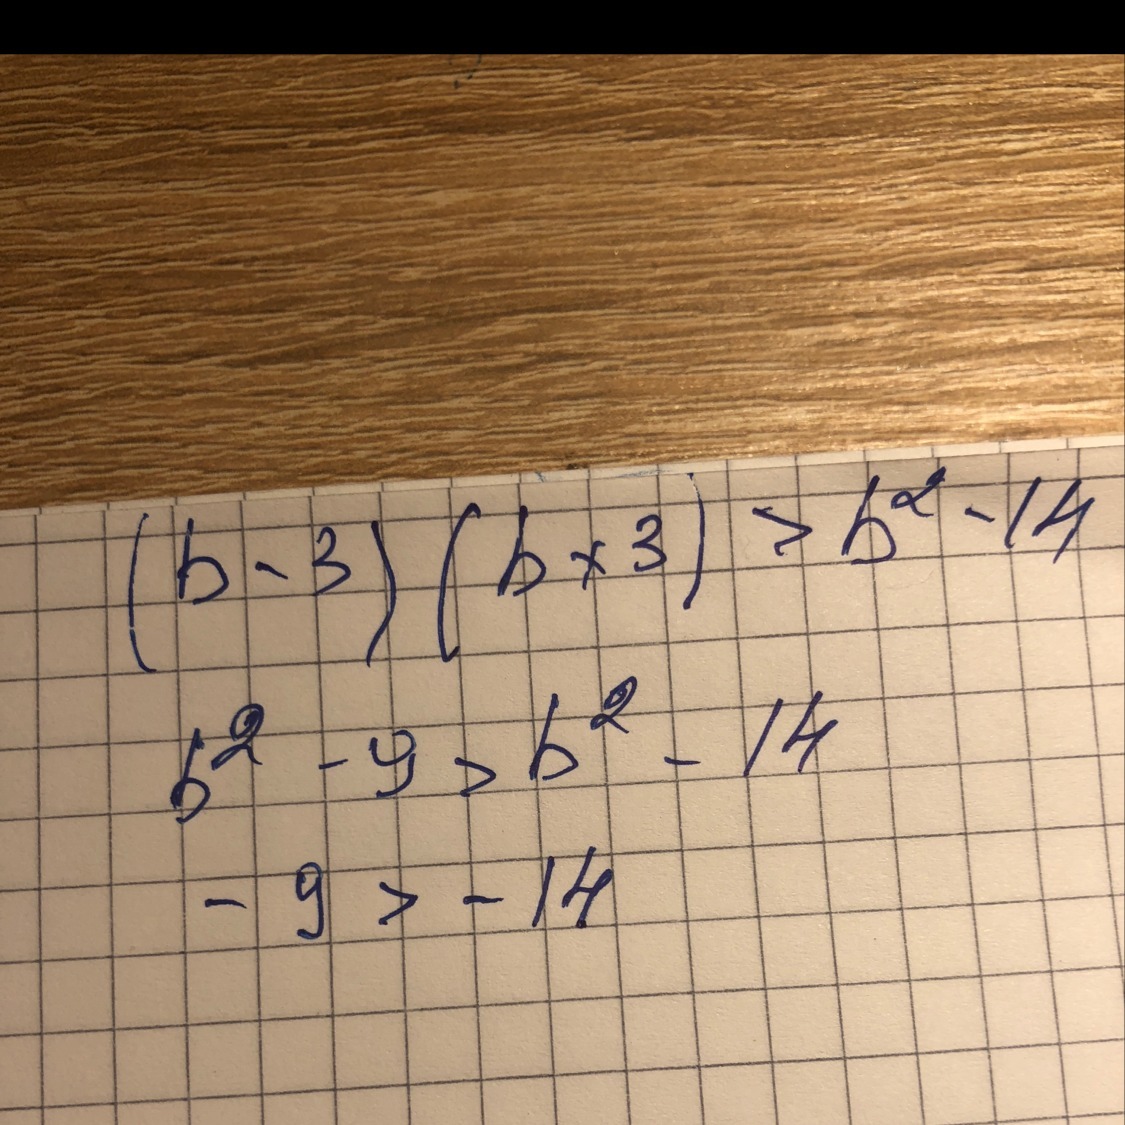 (b - 3) (b + 3) > b² - 14
b² - 9 > b² - 14
- 9 > - 14